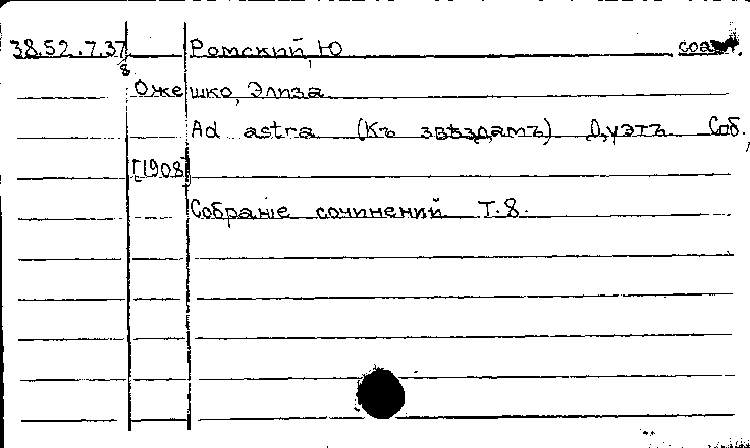 38.52.7.37 Ромский, Ю соавт.
8
Ожешко, Элиза
Ad astra (Къ звѣздамъ) Дуэтъ Соб.,
[1908]
Собраніе сочинений Т.8.